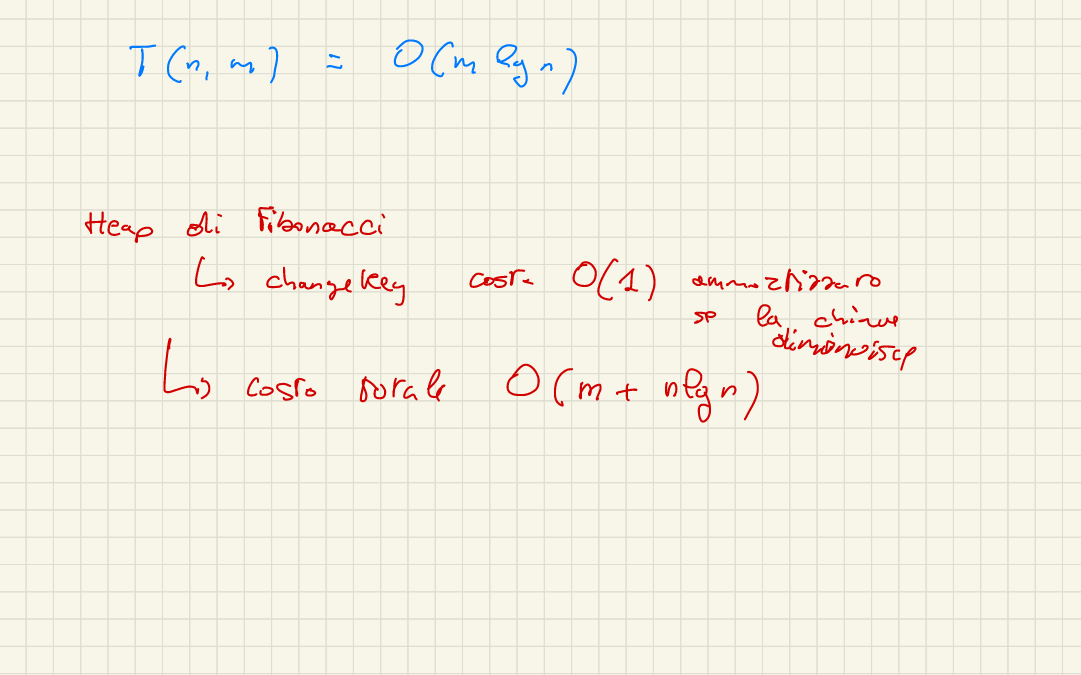 T(n, m) = O(m lg n)
Heap di Fibonacci
↳ changeKey costa O(1) ammortizzato
se la chiave
diminuisce
↳ costo totale O(m + n lg n)